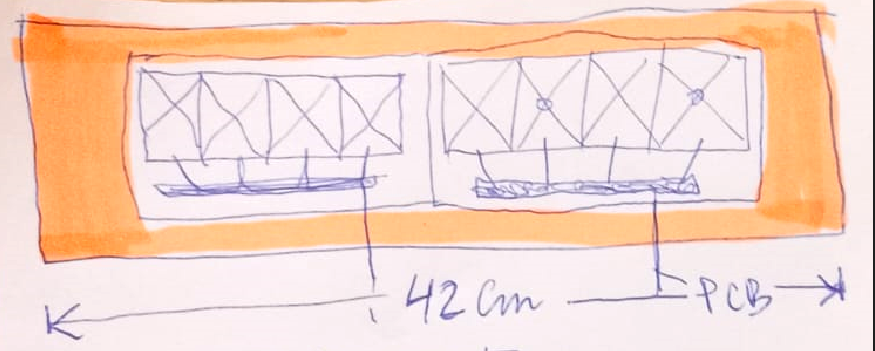 42 cm PCB